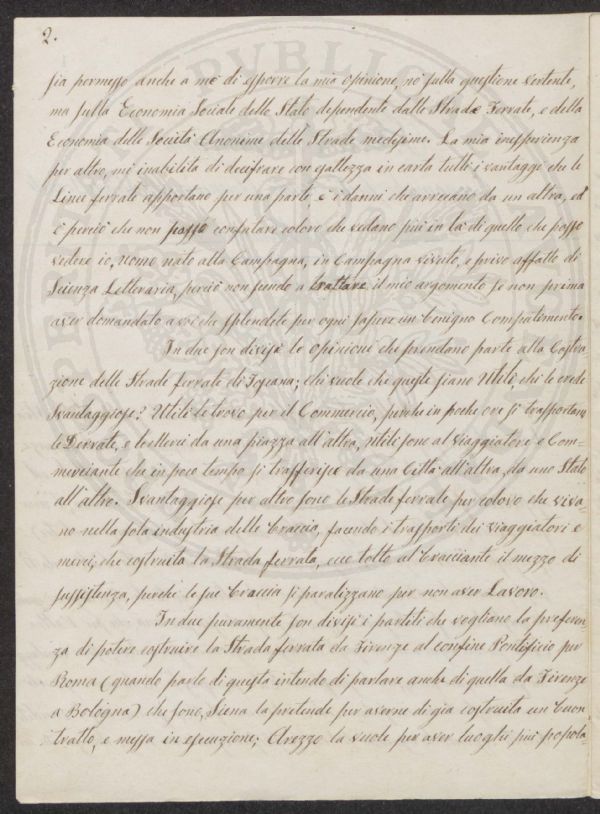 2.
sia permesso anche a me di esporre la mia opinione, no sulla questione vertente,
ma sulla Economia Sociale dello Stato dependente dalle Strade Ferrate, e della
Economia delle Società Anonime delle Strade medesime. La mia inesperienza
per altro, mi inabilita di decifrare con esattezza in carta tutti i vantaggi che le
Linee ferrate apportano per una parte, e i danni che arrecano da un altra, ed
è perciò che non posso confutare coloro che vedano più in là di quello che posso
vedere io, uomo nato alla Campagna, in Campagna vivuto, e privo affatto di
Scienza Letteraria, perciò non scendo a trattare il mio argomento se non prima
aver domandato a voi che splendete per ogni sapere un benigno Compatimento.
In due son divise le opinioni che prendano parte alla Costru
zione delle Strade ferrate di Toscana; chi vuole che queste siano Utili, chi le crede
Svantaggiose? Utili le trovo per il Commercio, perche in poche ore si trasportano
le Derrate, e le Merci da una piazza all'altra, utili sono al viaggiatore e Com=
merciante che in poco tempo si trasferisce da una Città all'altra, da uno Stato
all'altro. Svantaggiose per altro sono le Strade ferrate per coloro che viva=
no nella sola industria delle braccia, facendo i trasporti dei viaggiatori e
merci, che costruita la Strada ferrata, ecco tolto al bracciante il mezzo di
sussistenza, perchè le sue braccia si paralizzano per non aver Lavoro.
In due puramente son divisi i partiti che vogliano la preferen
za di potere costruire la Strada ferrata da Firenze al confine Pontificio per
Roma (quando parlo di questa intendo di parlare anche di quella da Firenze
a Bologna) che sono, Siena la pretende per averne di già costruita un buon
tratto, e messa in esecuzione; Arezzo la vuole per aver luoghi più popola=